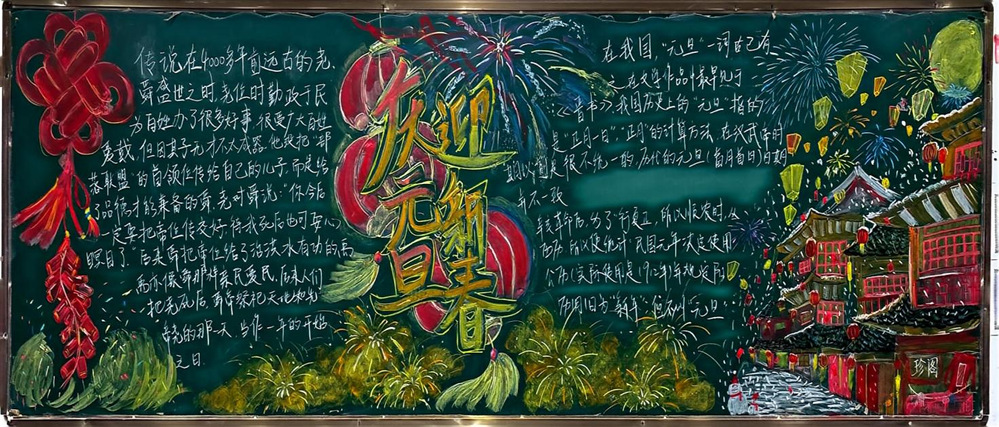 传说在4000多年前远古的尧
舜盛世之时，尧在位时勤政于民
为百姓办了很多好事，很受广大百姓
爱戴，但因其子无才不太成器，他没把“部
落联盟”的首领位传给自己的儿子，而是传
给了品德才能兼备的舜。尧对舜说：“你今后
一定要把帝位传交好，待我死后也可安心
瞑目了。”后来舜把帝位传给了治洪水有功的禹
禹亦像舜那样亲民爱民，后来人们
把尧死后，舜帝祭祀天地和先
帝尧的那一天，当作一年的开始
之日
欢庆元旦
迎新春
在我国，“元旦”一词古已有
之，在文学作品中最早见于
《晋书》。我国历史上的“元旦”指的
是“正月一日”。“正月”的计算方法，在汉武帝时
期以前是很不统一的，历代的元旦（首月首日）日期
并不一致
辛亥革命后，为了“行夏正，所以顺农时，从
西历，所以便统计”，民国元年决定使用
公历（实际使用是1912年）
旧历“新年”，但不叫“元旦
珍阁